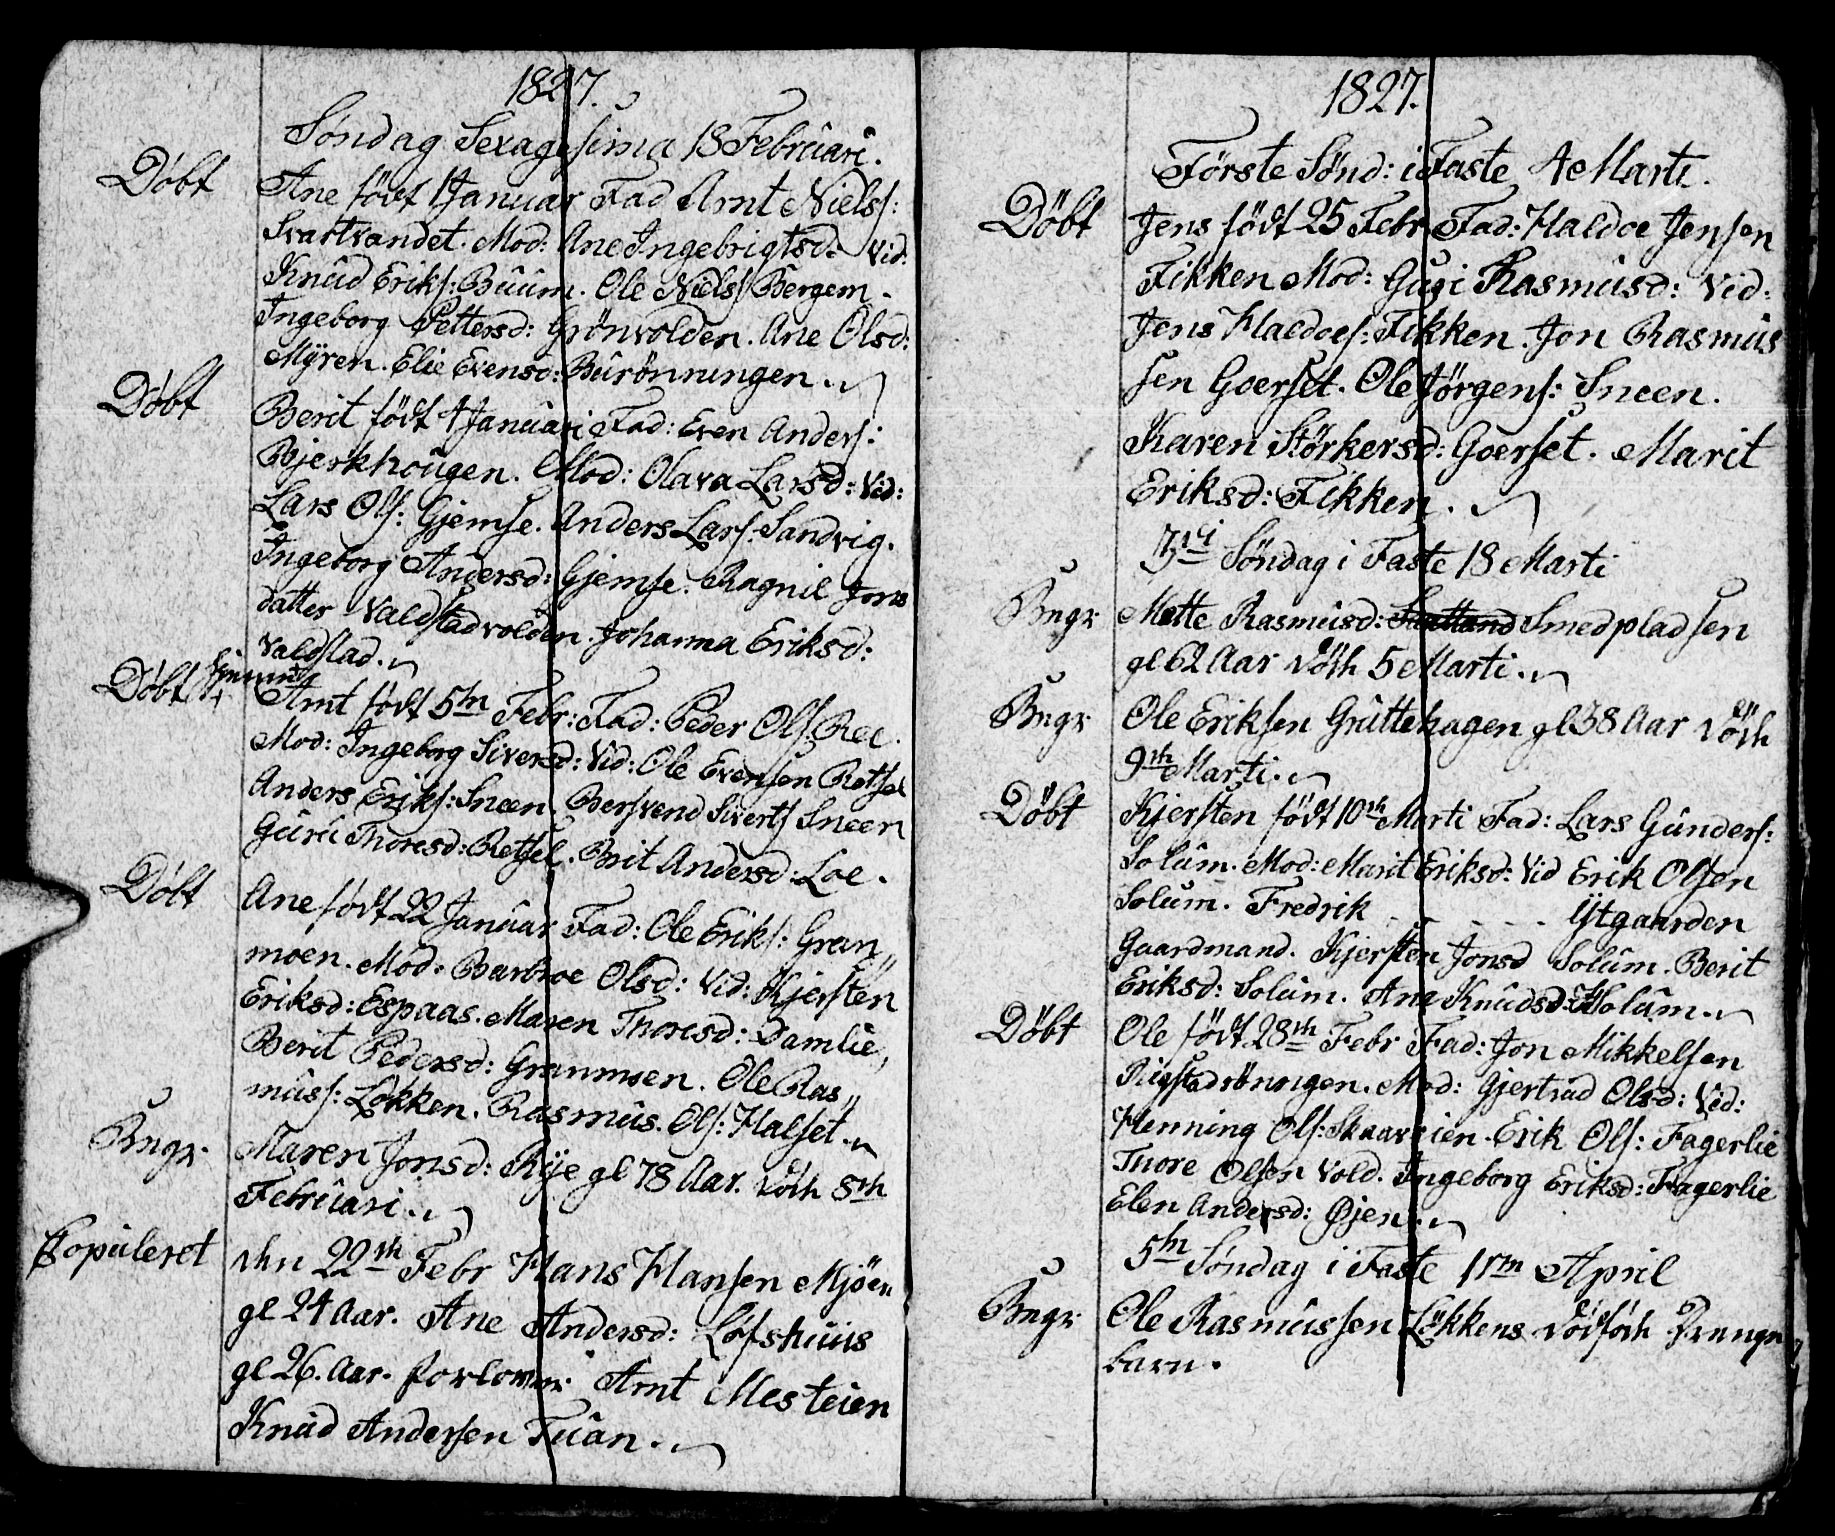 1827.
Søndag Sexagesima 18 Februari.
Døbt Ane født 1 Januar Fad Arnt Niels:
Svartvandet. Mod: Ane Ingebrigtsd: Vid:
Knud Eriks: Buum. Ole Niels: Bergem.
Ingeborg Pettersd: Grönvolden. Ane Olsd:
Myren. Elie Evensd: Burönningen.
Døbt Berit født 4 Januari Fad: Even Anders:
Bjerkhougen. Mod: Olava Larsd: Vid:
Lars Ols: Gjemse. Anders Lars: Sandvig.
Ingeborg Andersd: Gjemse. Ragnil Jons
datter Valdstadvolden. Johanna Eriksd:
Valdstad.
Døbt Arnt født 5th Febr: Fad: Peder Ols: Ree.
Mod: Ingeborg Siversd: Vid: Ole Evensen Retsel
Anders Eriks: Sneen. Bersvend Siverts Sneen
Guru Thoresd: Retsel. Brit Andersd: Loe.
Døbt Ane født 22 Januar Fad: Ole Eriks: Gran„
moen. Mod. Barbroe Olsd: Vid: Kjersten
Eriksd: Espaas. Maren Thoresd: Damlie,
Berit Pedersd: Granmoen. Ole Ras„
mus: Løkken. Rasmus. Ols: Halset.
Bngr. Maren Jonsd: Rye gl 78 Aar. Död 8th
Februari.
Copuleret den 22th Febr Hans Hansen Mjöen
gl 24 Aar. Ane Andersd: Løfshuus
gl 26. Aar. Forlover: Arnt Mesteien
Knud Andersen Tuan.
1827.
Første Sønd: i Faste 4 Marti.
Døbt Jens født 25 Febr Fad: Haldoe Jensen
Fikken Mod: Guri Rasmusd: Vid:
Jens Haldoes: Fikken. Jon Rasmus
sen Goerset. Ole Jörgens: Sneen.
Karen Störkersd: Goerset. Marit
Eriksd: Fikken.
3die Søndag i Faste 18 Marti
Bngr. Mette Rasmusd: Smedpladsen
gl 62 Aar död 5 Marti.
Bngr. Ole Eriksen Gruttehagen gl 38 Aar död
9th Marti.
Døbt Kjersten født 10th Marti Fad: Lars Gunders:
Solum. Mod: Marit Eriksd: Vid Erik Olsen
Solum. Fredrik - - - - - Ytgaarden
Gaardmand. Kjersten Jonsd Solum. Berit
Eriksd: Solum. Ane Knudsd: Solum.
Døbt Ole født 28th Febr Fad: Jon Mikkelsen
Rigstadrönningen. Mod: Gjertrud Olsd: Vid:
Henning Ols: Skaarveien. Erik Ols: Fagerlie
Thore Olsen Vold. Ingeborg Eriksd: Fagerlie
Elen Andersd: Øjen.
5th Søndag i Faste 1ste April
Bngr. Ole Rasmussen Løkkens dödföd Drenge
barn.